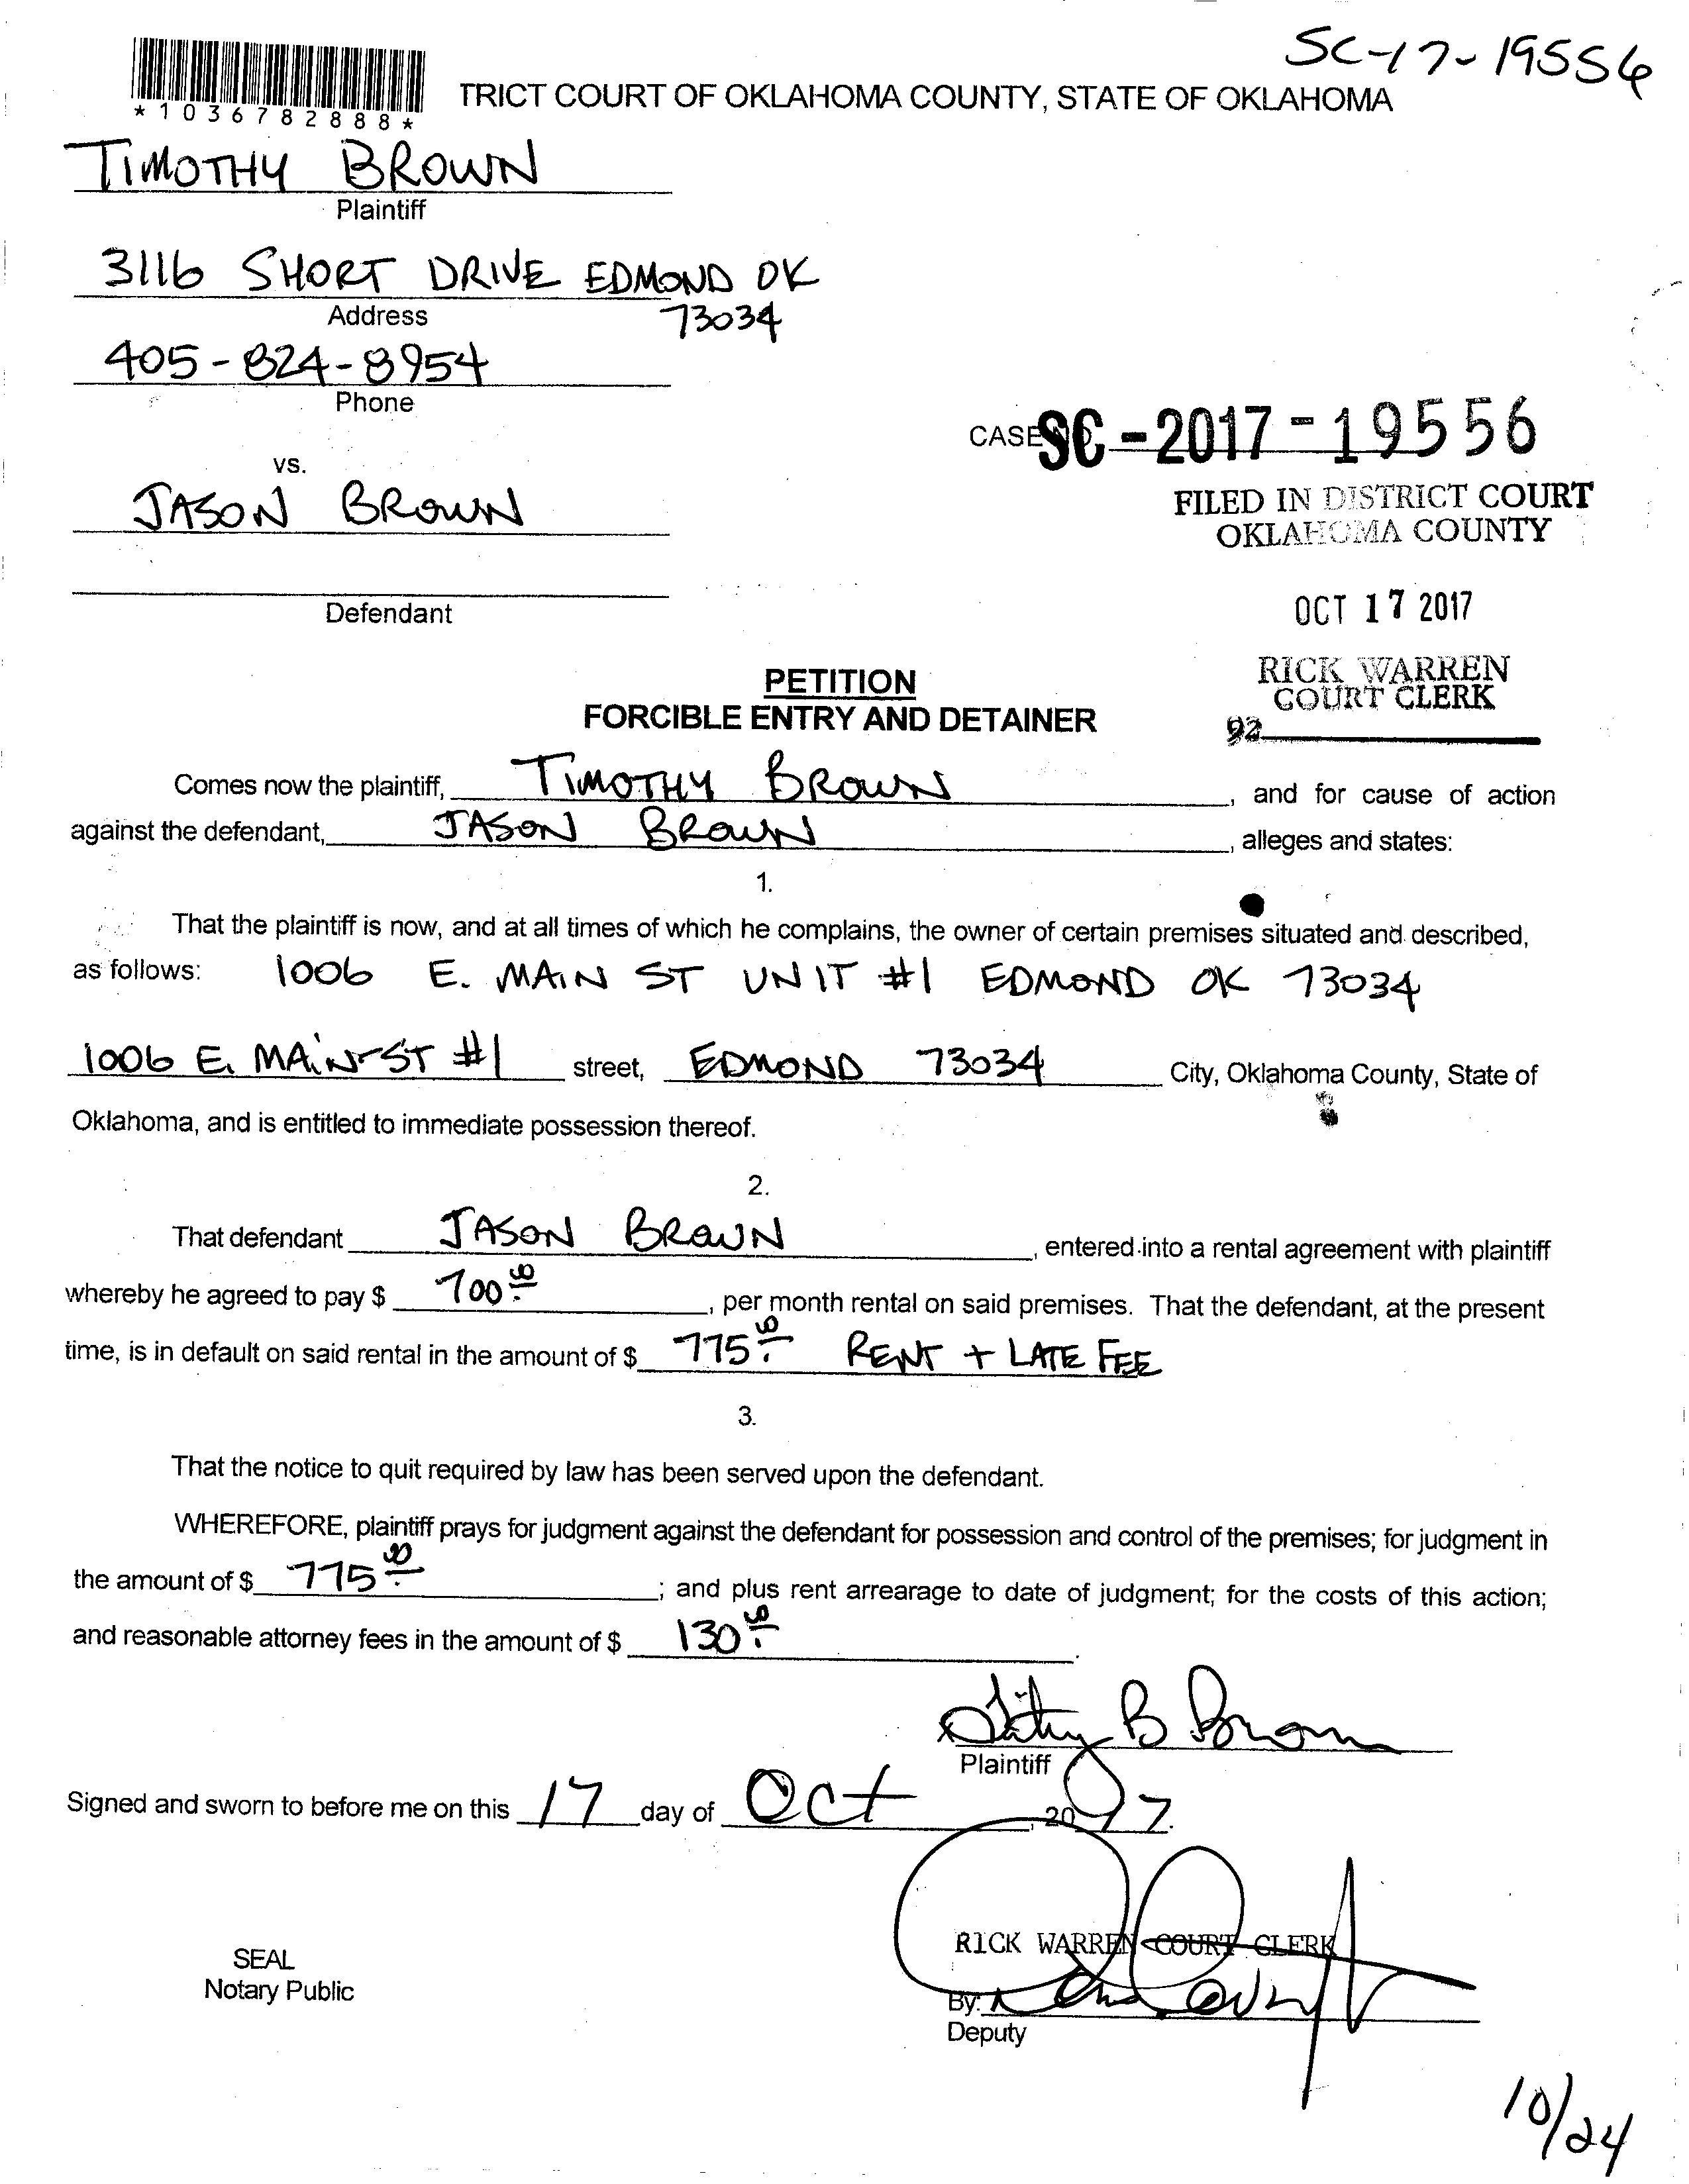 SC-17-19556
*1036782888*
TRICT COURT OF OKLAHOMA COUNTY, STATE OF OKLAHOMA
TIMOTHY BROWN
Plaintiff
3116 SHORT DRIVE EDMOND OK
Address 73034
405-824-8954
Phone
CASE SC-2017-19556
vs.
FILED IN DISTRICT COURT
JASON BROWN
OKLAHOMA COUNTY
Defendant
OCT 17 2017
RICK WARREN
PETITION
COURT CLERK
FORCIBLE ENTRY AND DETAINER
92
Comes now the plaintiff, TIMOTHY BROWN, and for cause of action
against the defendant, JASON BROWN, alleges and states:
1.
That the plaintiff is now, and at all times of which he complains, the owner of certain premises situated and described,
as follows: 1006 E. MAIN ST UNIT #1 EDMOND OK 73034
1006 E. MAIN ST #1 street, EDMOND 73034 City, Oklahoma County, State of
Oklahoma, and is entitled to immediate possession thereof.
2.
That defendant JASON BROWN, entered into a rental agreement with plaintiff
whereby he agreed to pay $ 700.00, per month rental on said premises. That the defendant, at the present
time, is in default on said rental in the amount of $ 775.00 RENT + LATE FEE
3.
That the notice to quit required by law has been served upon the defendant.
WHEREFORE, plaintiff prays for judgment against the defendant for possession and control of the premises; for judgment in
the amount of $ 775.00; and plus rent arrearage to date of judgment; for the costs of this action;
and reasonable attorney fees in the amount of $ 130.00.
B Brown
Plaintiff
Signed and sworn to before me on this 17 day of Oct, 2017.
RICK WARREN COURT CLERK
SEAL
Notary Public
By:
Deputy
10/24